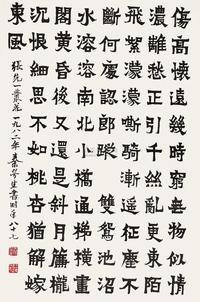 傷高懷遠幾時窮無物似情
濃離愁正引千絲亂更東陌
飛絮濛濛嘶騎漸遙征塵不
斷何處認郎蹤 雙鴛池沼
水溶溶南北小橋通梯橫畫
閣黃昏後又還是斜月簾櫳
沈恨細思不如桃杏猶解嫁
東風 張先一叢花一九八二年蕭勞書時年八十七